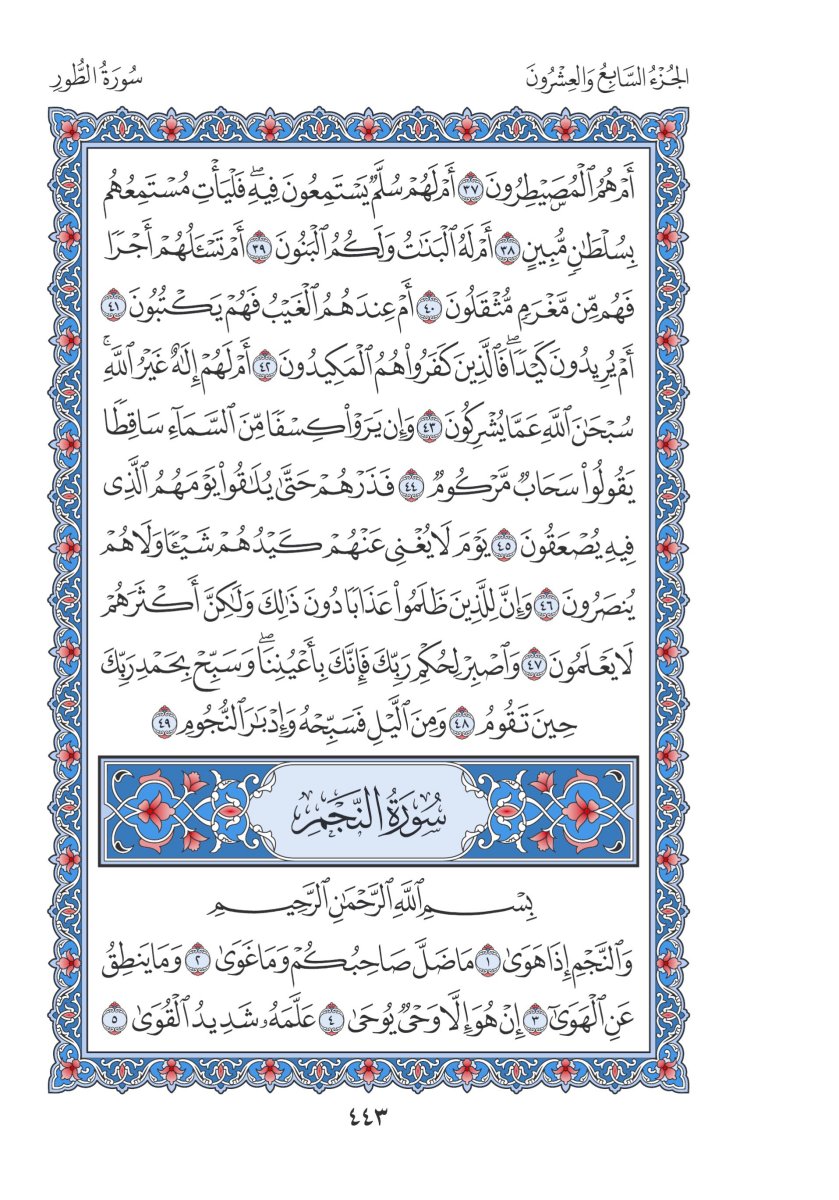 الجُزْءُ السَّابِعُ وَالعِشْرُونَ
سُورَةُ الطُّورِ
أَمْ هُمُ ٱلْمُصَۜيْطِرُونَ ٣٧ أَمْ لَهُمْ سُلَّمٌ يَسْتَمِعُونَ فِيهِۖ فَلْيَأْتِ مُسْتَمِعُهُم
بِسُلْطَٰنٍ مُّبِينٍ ٣٨ أَمْ لَهُ ٱلْبَنَٰتُ وَلَكُمُ ٱلْبَنُونَ ٣٩ أَمْ تَسْـَٔلُهُمْ أَجْرًا
فَهُم مِّن مَّغْرَمٍ مُّثْقَلُونَ ٤٠ أَمْ عِندَهُمُ ٱلْغَيْبُ فَهُمْ يَكْتُبُونَ ٤١
أَمْ يُرِيدُونَ كَيْدًاۖ فَٱلَّذِينَ كَفَرُوا۟ هُمُ ٱلْمَكِيدُونَ ٤٢ أَمْ لَهُمْ إِلَٰهٌ غَيْرُ ٱللَّهِۚ
سُبْحَٰنَ ٱللَّهِ عَمَّا يُشْرِكُونَ ٤٣ وَإِن يَرَوْا۟ كِسْفًا مِّنَ ٱلسَّمَآءِ سَاقِطًا
يَقُولُوا۟ سَحَابٌ مَّرْكُومٌ ٤٤ فَذَرْهُمْ حَتَّىٰ يُلَٰقُوا۟ يَوْمَهُمُ ٱلَّذِى
فِيهِ يُصْعَقُونَ ٤٥ يَوْمَ لَا يُغْنِى عَنْهُمْ كَيْدُهُمْ شَيْـًٔا وَلَا هُمْ
يُنصَرُونَ ٤٦ وَإِنَّ لِلَّذِينَ ظَلَمُوا۟ عَذَابًا دُونَ ذَٰلِكَ وَلَٰكِنَّ أَكْثَرَهُمْ
لَا يَعْلَمُونَ ٤٧ وَٱصْبِرْ لِحُكْمِ رَبِّكَ فَإِنَّكَ بِأَعْيُنِنَاۖ وَسَبِّحْ بِحَمْدِ رَبِّكَ
حِينَ تَقُومُ ٤٨ وَمِنَ ٱلَّيْلِ فَسَبِّحْهُ وَإِدْبَٰرَ ٱلنُّجُومِ ٤٩
سُورَةُ النَّجْمِ
بِسْمِ ٱللَّهِ ٱلرَّحْمَٰنِ ٱلرَّحِيمِ
وَٱلنَّجْمِ إِذَا هَوَىٰ ١ مَا ضَلَّ صَاحِبُكُمْ وَمَا غَوَىٰ ٢ وَمَا يَنطِقُ
عَنِ ٱلْهَوَىٰٓ ٣ إِنْ هُوَ إِلَّا وَحْىٌ يُوحَىٰ ٤ عَلَّمَهُۥ شَدِيدُ ٱلْقُوَىٰ ٥
٤٤٣